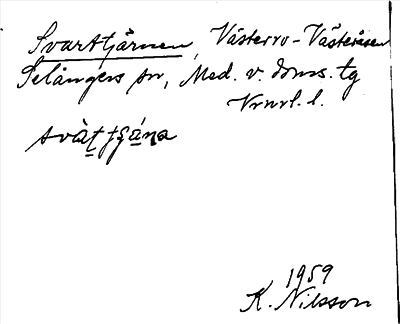 Svarttjärnen, Västerro-Västeråsen
Selångers sn, Med. v. doms. tg
Vrnrl. l.
svàt̲ tʃä́n̲a
1959
K. Nilsson